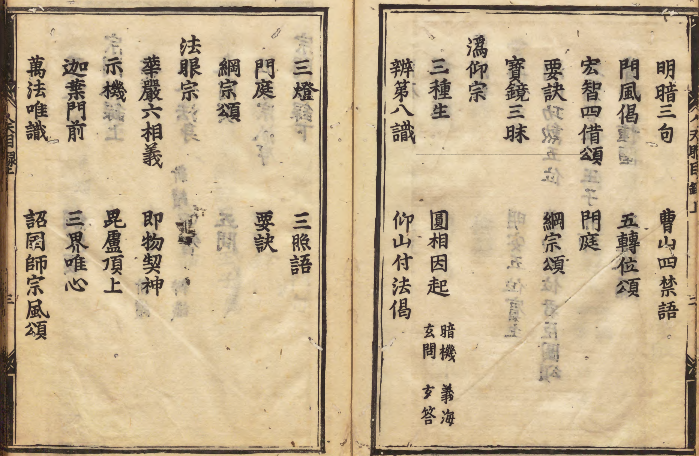 明暗三句 曹山四禁語
門風偈 五轉位頌
宏智四借頌 門庭
要訣 綱宗頌
寶鏡三昧
溈仰宗
三種生 圓相因起 暗機 義海
玄問 玄答
辨第八識 仰山付法偈
三燈語 三照語
門庭 要訣
綱宗頌
法眼宗
華嚴六相義 即物契神
示機 毘盧頂上
迦葉門前 三界唯心
萬法唯識 詔國師宗風頌